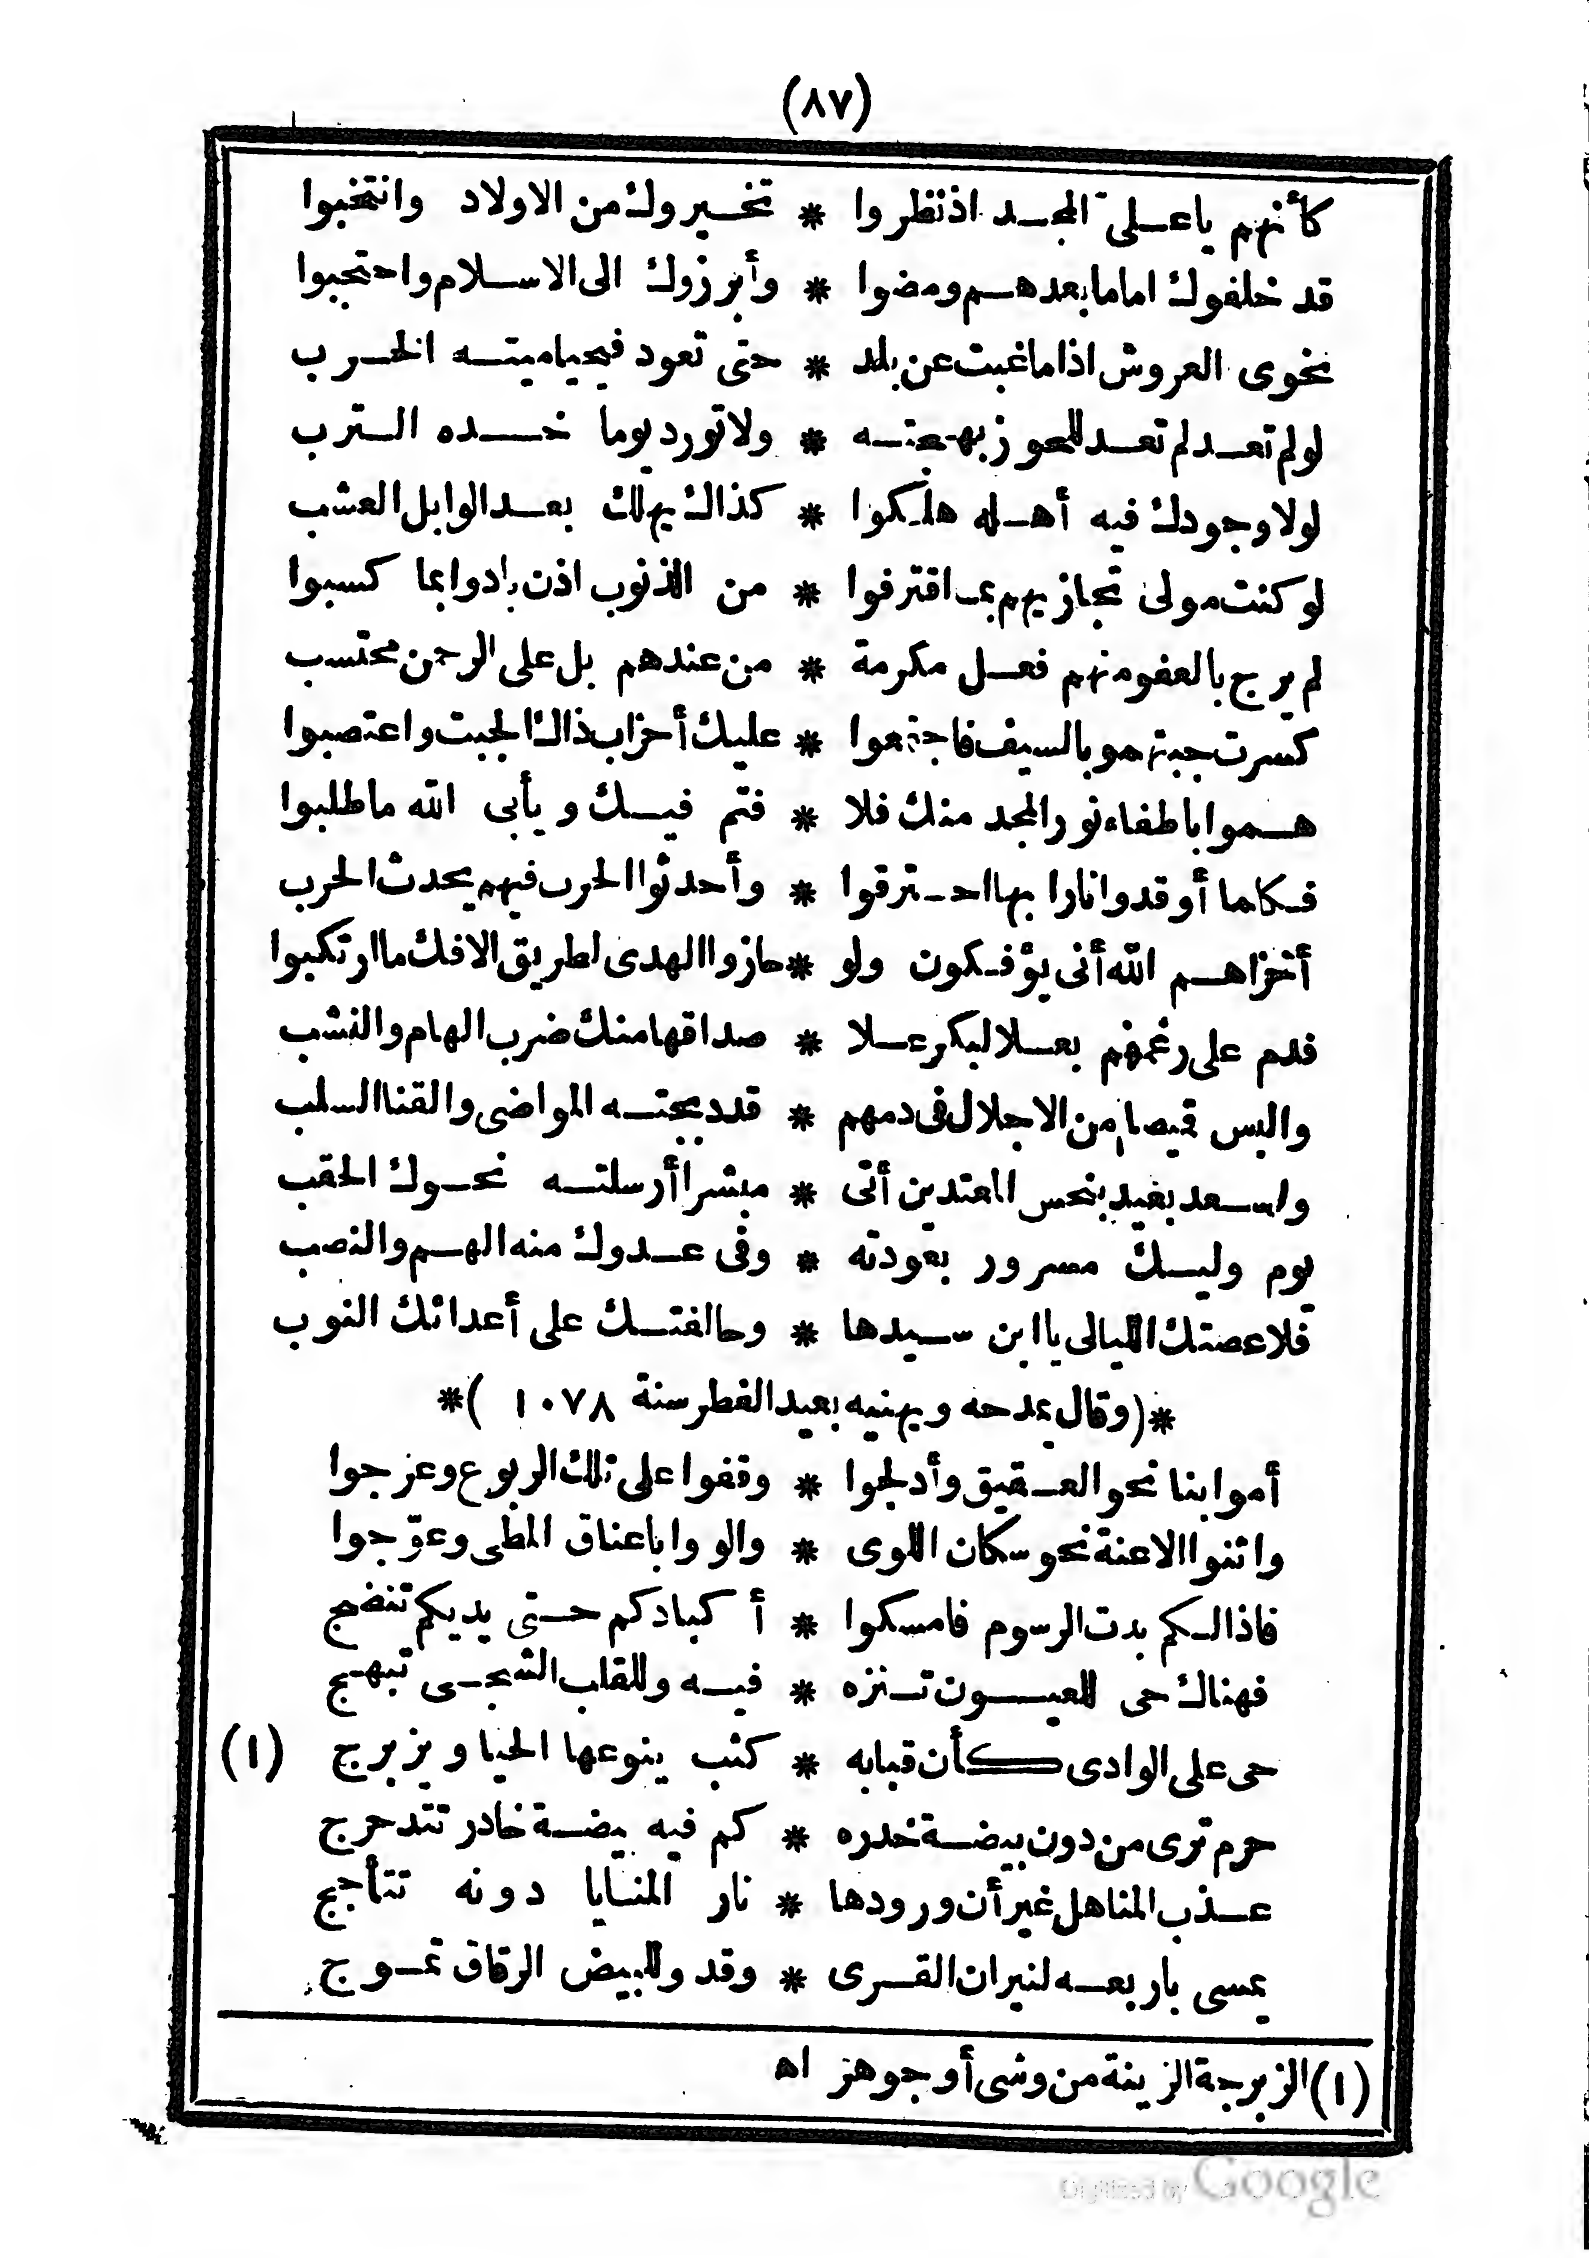 (٨٧)
كأنهم ياعلىّ المجد اذ نظروا * تخيروك من الاولاد وانتخبوا
قد خلفوك اماما بعدهم ومضوا * وأبرزوك الى الاسلام واحتجبوا
تخوى العروش اذا ماغبت عن بلد * حتى تعود فيحيا ميته الخرب
لو لم تعد لم تعد للحوز بهجته * ولا تورد يوما خده الترب
لولا وجودك فيه أهله هلكوا * كذاك يهلك بعد الوابل العشب
لو كنت مولى تجازيهم بما اقترفوا * من الذنوب اذن بادوا بما كسبوا
لم يرج بالعفو منهم فعل مكرمة * من عندهم بل على الرحمن محتسب
كسرت جبتهمو بالسيف فاجتمعوا * عليك أحزاب ذاك الجبت واعتصبوا
هموا باطفاء نور المجد منك فلا * فتم فيك ويأبى الله ماطلبوا
فكلما أوقدوا نارا بها احترقوا * وأحدثوا الحرب فيهم يحدث الحرب
أخزاهم الله أنى يؤفكون ولو * حازوا الهدى لطريق الافك ما ارتكبوا
فدم على رغمهم بعلا لبكر علا * صداقها منك ضرب الهام والنشب
والبس قميصا من الاجلال فى دمهم * قد دبجته المواضى والقنا السلب
واسعد بعيد بنحس المعتدين أتى * مبشرا أرسلته نحوك الحقب
يوم وليك مسرور بعودته * وفى عدوك منه الهم والنصب
فلا عصتك الليالى يا ابن سيدها * وحالفتك على أعدائك النوب
*(وقال يمدحه ويهنيه بعيد الفطر سنة ١٠٧٨ )*
أموا بنا نحو العقيق وأدلجوا * وقفوا على تلك الربوع وعرجوا
واثنوا الاعنة نحو سكان اللوى * والووا باعناق المطى وعوّجوا
فاذا لكم بدت الرسوم فامسكوا * أكبادكم حتى يديكم تنضج
فهناك حى للعيون تنزه * فيه وللقلب الشجى تبهج
حى على الوادى كأن قبابه * كثب ينوعها الحيا ويزبرج (١)
حرم ترى من دون بيضة خدره * كم فيه بيضة خادر تتدحرج
عذب المناهل غير أن ورودها * نار المنايا دونه تتأجج
يمسى باربعه لنيران القرى * وقد وللبيض الرقاق تموج
(١) الزبرجة الزينة من وشى أو جوهر اه
Digitized by Google